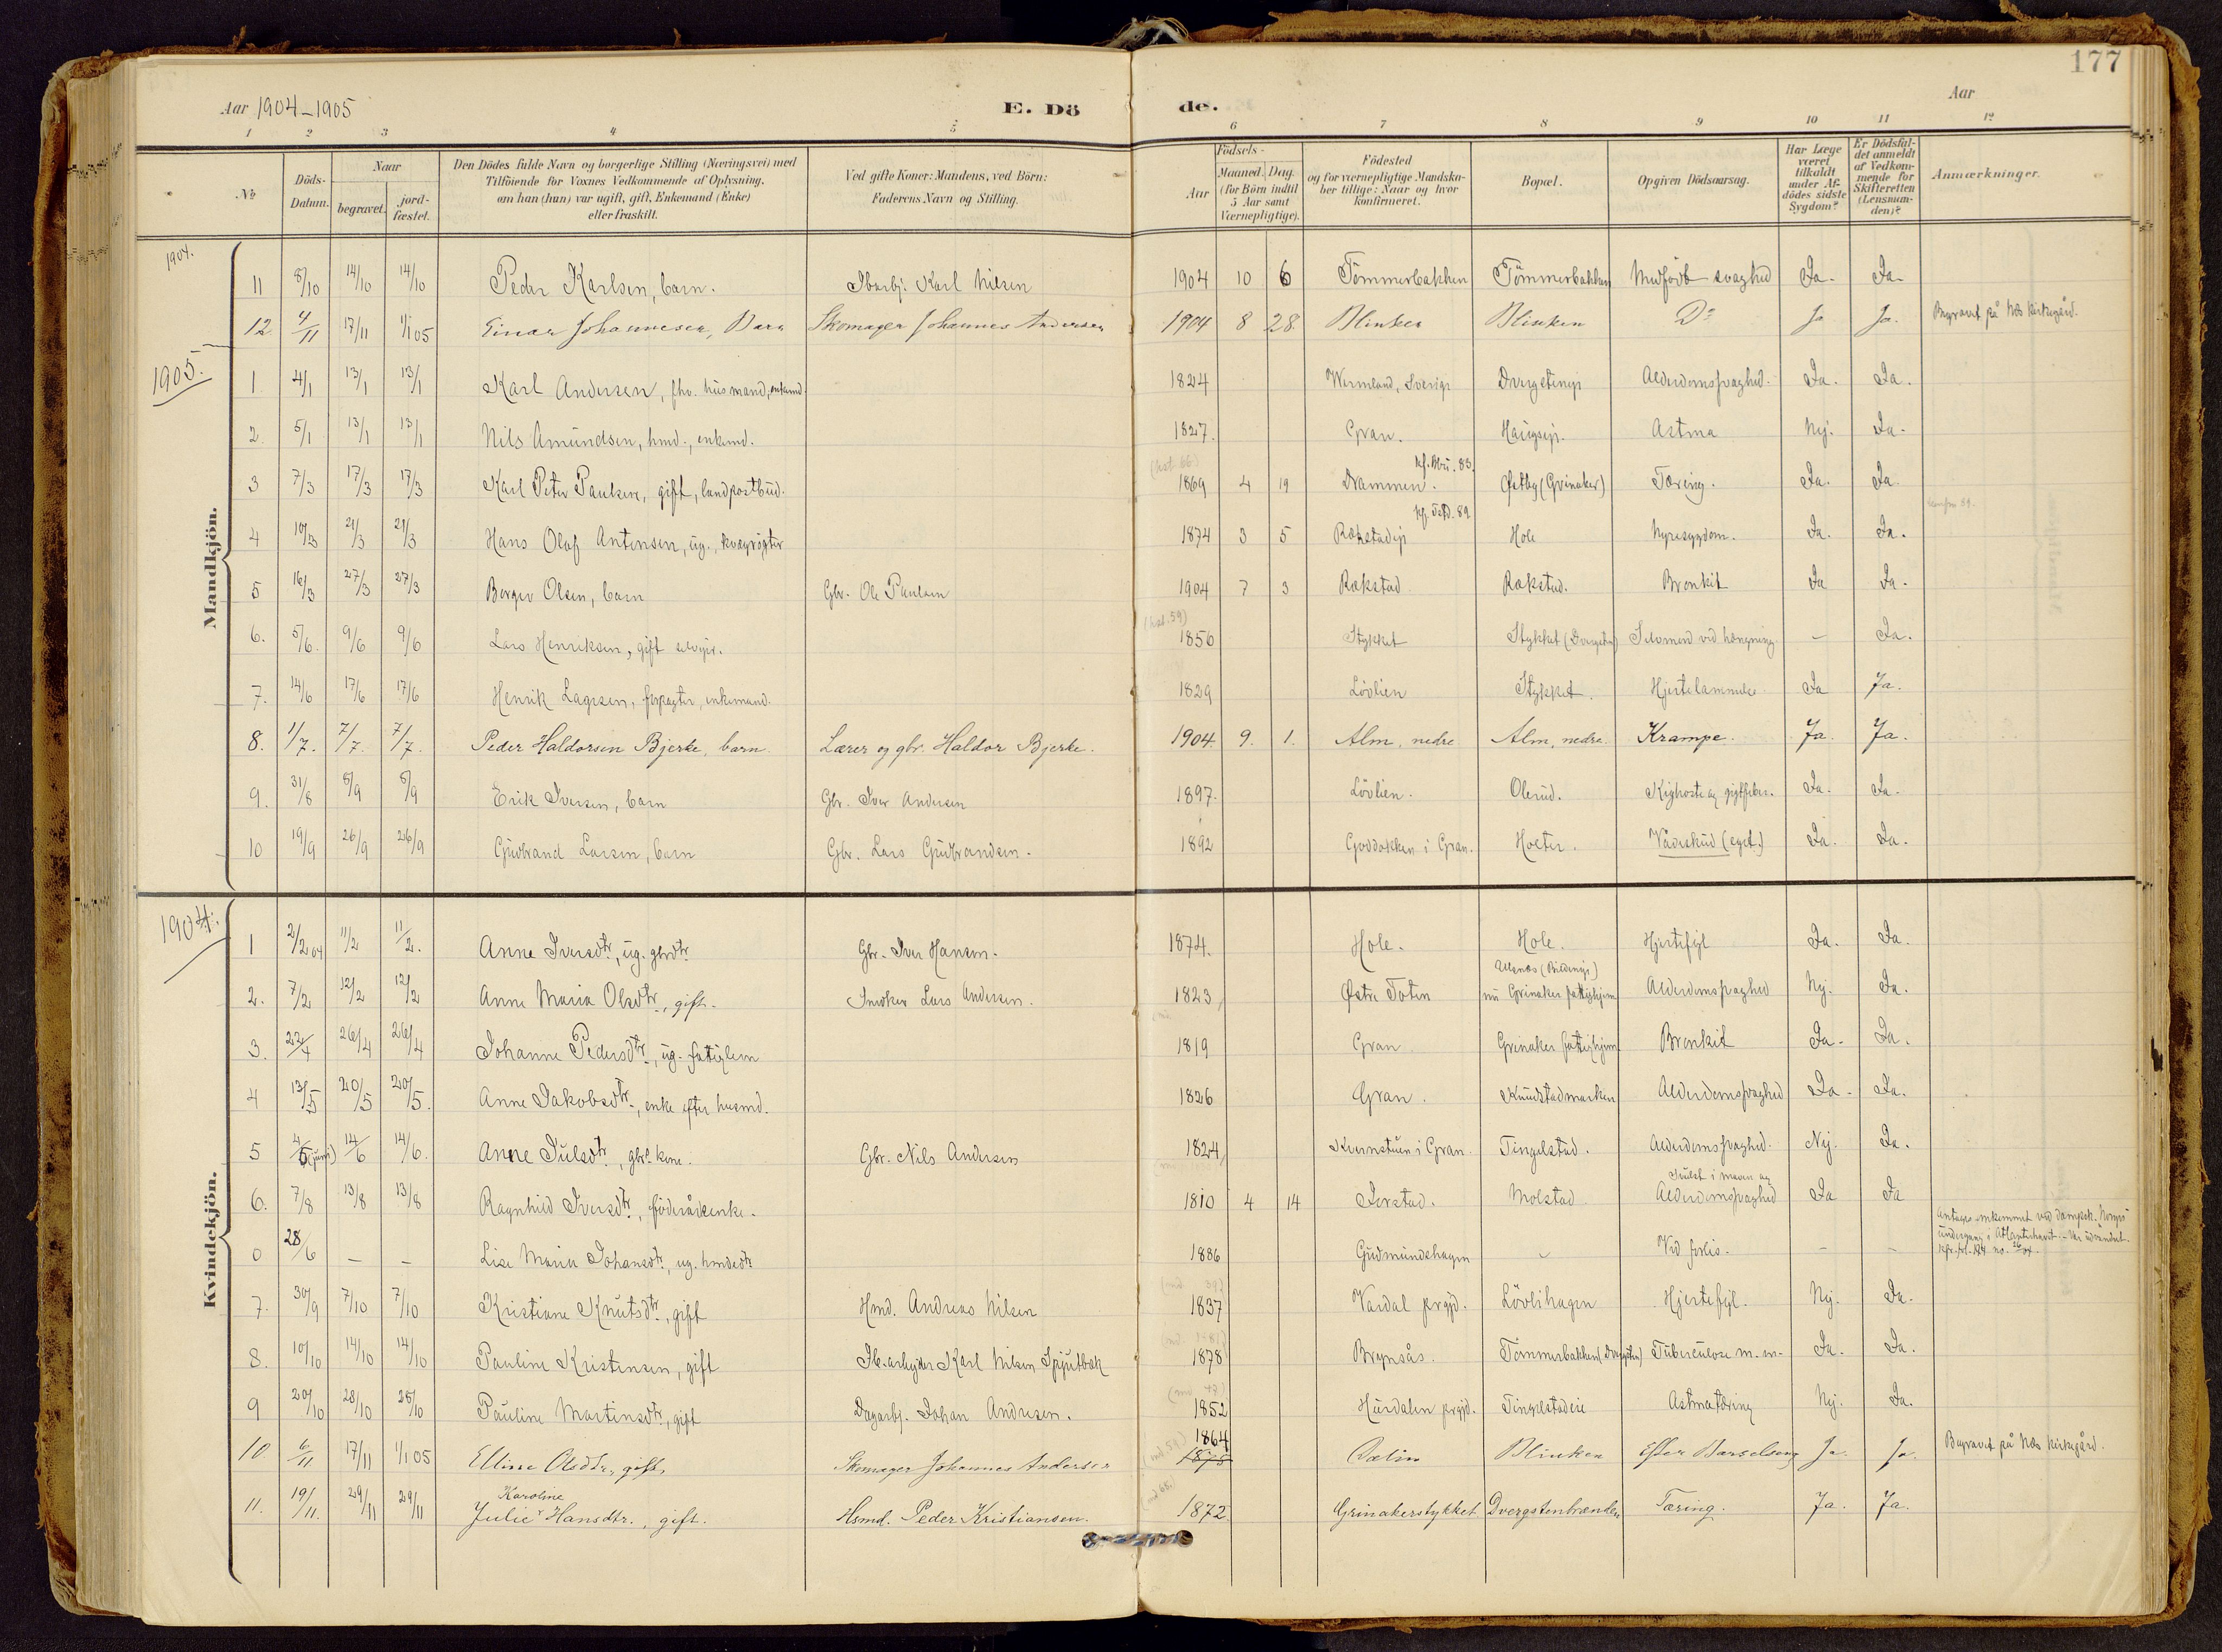 177
Aar 1904-1905
E. Dö de.
Aar
1 2 3 4 5 6 7 8 9 10 11 12
No
Döds-Datum.
Naar
begravet.
jord-fæstet.
Den Dödes fulde Navn og borgerlige Stilling (Næringsvei) med
Tilföiende for Voxnes Vedkommende af Oplysning,
om han (hun) var ugift, gift, Enkemand (Enke)
eller fraskilt.
Ved gifte Koner: Mandens, ved Börn:
Faderens Navn og Stilling.
Födsels-
Aar
Maaned. Dag.
(for Börn indtil
5 Aar samt
Værnepligtige).
Födested
og for værnepligtige Mandska-
ber tillige: Naar og hvor
konfirmeret.
Bopæl.
Opgiven Dödsaarsag.
Har Læge
været
tilkaldt
under Af-
dödes sidste
Sygdom?
Er Dödsfal-
det anmeldt
af Vedkom-
mende for
Skifteretten
(Lensman-
den)?
Anmærkninger.
Mandkjön.
1904.
11 8/10 14/10 14/10 Peder Karlsen, barn. Jbarbj. Karl Nilsen 1904 10 6 Tömmerbakken Tömmerbakken Medfödt svaghed Ja. Ja.
12. 4/11 17/11 1/1 05 Einar Johannesen, Barn Skomager Johannes Andersen 1904 8 28. Blinken Blinken Do Ja Ja. Begravet på Næs kirkegård.
1905.
1. 4/1 13/1 13/1 Karl Andersen, fhv. husmand, enkemd. 1824 Wermland, Sverige Alderdomssvaghed. Ja. Ja.
2. 5/1 13/1 13/1 Nils Amundsen, hmd., enkemd. 1827. Gran. Haugsej. Astma Nej. Ja.
3 7/3 17/3 17/3 Karl Peter Paulsen, gift, landpostbud. 1869 4 19 Drammen. Østby (Grinaker) Tæring. Ja. Ja.
4 10/3 21/3 21/3 Hans Olaf Antonsen, ug., kvægrögter 1874 3 5 Rækstadej Hole Nyresygdom. Ja. Ja.
5 16/3 27/3 27/3 Borger Olsen, barn Gbr. Ole Paulsen 1904 7 3 Rækstad Rækstad. Bronkit Ja Ja.
6. 5/6. 9/6 9/6 Lars Henriksen, gift selvejer. 1856 Stykket Stykket Selvmord ved hængning. — Ja.
7. 14/6 17/6 17/6 Henrik Larsen, forpagter, enkemand. 1829 Lövlien Stykket. Hjertelammelse Ja Ja.
8. 1/7. 7/7. 7/7. Peder Haldorsen Bjerke, barn. Lærer og gbr. Haldor Bjerke. 1904. 9. 1. Alm, nedre Alm, nedre. Krampe. Ja. Ja.
9. 31/8 5/9 5/9 Erik Iversen, barn Gbr. Iver Andersen 1897. Lövlien. Olerud. Kighoste og gigtfeber. Ja. Ja.
10 19/9 26/9 26/9 Gudbrand Larsen, barn Gbr. Lars Gudbrandsen. 1892 Goddakken i Gran. Holter. Vådeskud (eget.) Ja. Ja.
Kvindekjön.
1904.
1 2/2 04 11/2 11/2. Anne Iversdtr, ug. gbrdtr Gbr. Iver Hansen. 1874. Hole. Hole. Hjertefejl Ja. Ja.
2. 7/2 12/2 12/2 Anne Maria Olsdtr, gift. Snedker Lars Andersen. 1823 Østre Toten nu Grinaker fattighjem Alderdomssvaghed Nej. Ja.
3. 22/4 26/4 26/4 Johanne Pedersdtr, ug. fatiglem 1819 Gran Grinaker fattighjem Bronkit Ja. Ja.
4 13/5 20/5 20/5. Anne Jakobsdtr, enke efter husmd. 1826 Gran. Knudstadmarken Alderdomssvaghed Ja. Ja.
5 4/5 (juni) 14/6 14/6. Anne Julsdtr, gbr. kone. Gbr. Nils Andersen 1824 Kvernstuen i Gran. Tingelstad. Alderdomssvaghed. Nej. Ja.
6. 7/8 13/8 13/8 Ragnhild Iversdtr, föderådsenke. 1810 4 14 Jorstad. Molstad Svulst i maven og Alderdomssvaghed Ja Ja
0 28/6 — — Lise Maria Johansdtr, ug. hmdsdtr 1886 Gudmundshagen Ved forlis. — — Antages omkommet ved dampsk. Norges undergang i Atlanterhavet.
7. 30/9 7/10 7/10 Kristiane Knutsdtr, gift Hmd. Andreas Nilsen 1837 Vardal prgjd. Lövlihagen Hjertefejl. Nej. Ja.
8. 10/10 14/10 14/10 Pauline Kristensen, gift Jb.arbejder Karl Nilsen Spjutbæk 1878 Brynsås. Tömmerbakken Tuberculose m.m. Ja. Ja.
9 20/10 28/10 28/10 Pauline Martinsdtr, gift Dagarbj. Johan Andresen. 1852 Hurdalen prgjd. Tingelstadeie Astmatæring Nej. Ja.
10. 6/11 17/11 1/1 05 Elline Olsdtr, gift, Skomager Johannes Andersen 1864 1878 Dælin Blinken Efter Barselseng Ja. Ja. Begravet på Næs kirkegård.
11. 19/11. 29/11 29/11 Julie Karoline Hansdtr., gift. Hsmd. Peder Kristiansen. 1872. Grinakerstykket Dvergstenbrænden Tæring. Ja. Ja.